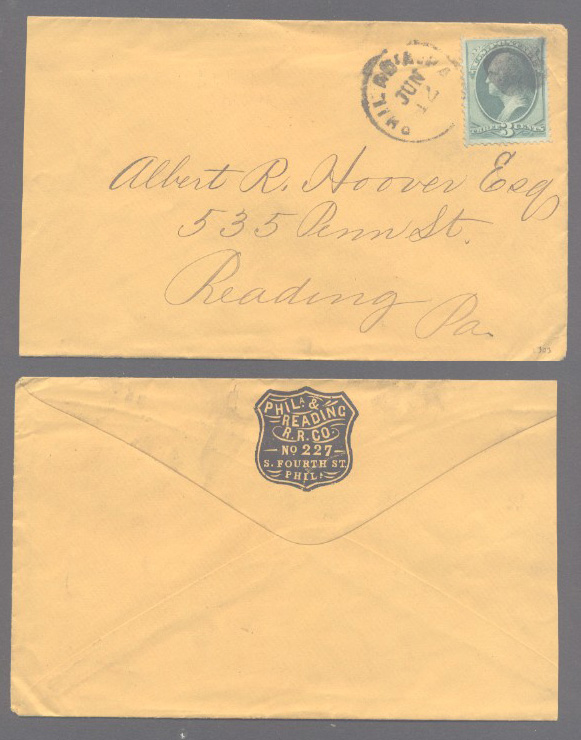 PHILAD'A. PA
JUN
12
U.S. POSTAGE
THREE 3 CENTS
Albert R. Hoover Esq
535 Penn St.
Reading
Pa.
PHILA. &
READING
R.R. CO.
No 227
S. FOURTH ST.
PHILA